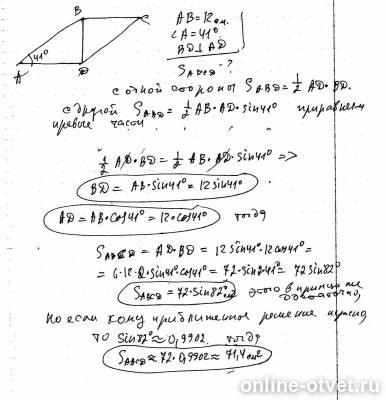 B
C
41°
A
D
AB = 12 см.
∠A = 41°
BD ⊥ AD
S_ABCD - ?
с одной стороны S_ABD = 1/2 AD · BD.
с другой S_ABD = 1/2 AB · AD · sin41° приравняем
правые части
1/2 AD · BD = 1/2 AB · AD · sin41° =>
BD = AB · sin41° = 12 sin41°
AD = AB · cos41° = 12 · cos41° тогда
S_ABCD = AD · BD = 12 sin41° · 12 cos41° =
= 6 · 12 · 2 · sin41° · cos41° = 72 · sin2·41° = 72 sin82°
S_ABCD = 72 · sin82° см² этого в принципе
достаточно,
Но если кому приближенное решение нужно,
то sin82° ≈ 0,9902. тогда
S_ABCD ≈ 72 · 0,9902 ≈ 71,4 см²
online-otvet.ru